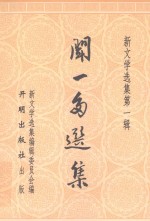 新文学选集第一辑
闻一多選集
新文学选集编辑委员会编
开明出版社出版